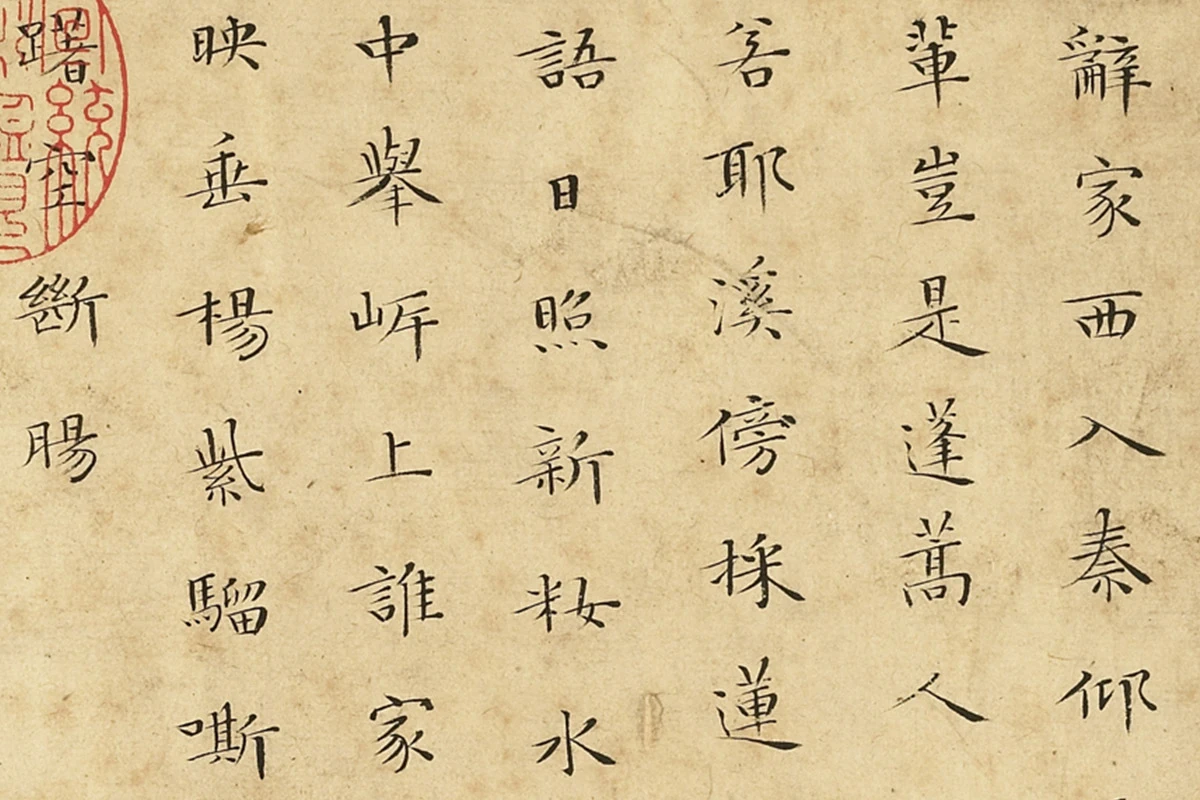 辭家西入秦仰
輩豈是蓬蒿人
若耶溪傍採蓮
語日照新粧水
中舉岸上誰家
映垂楊紫騮嘶
躇空斷腸